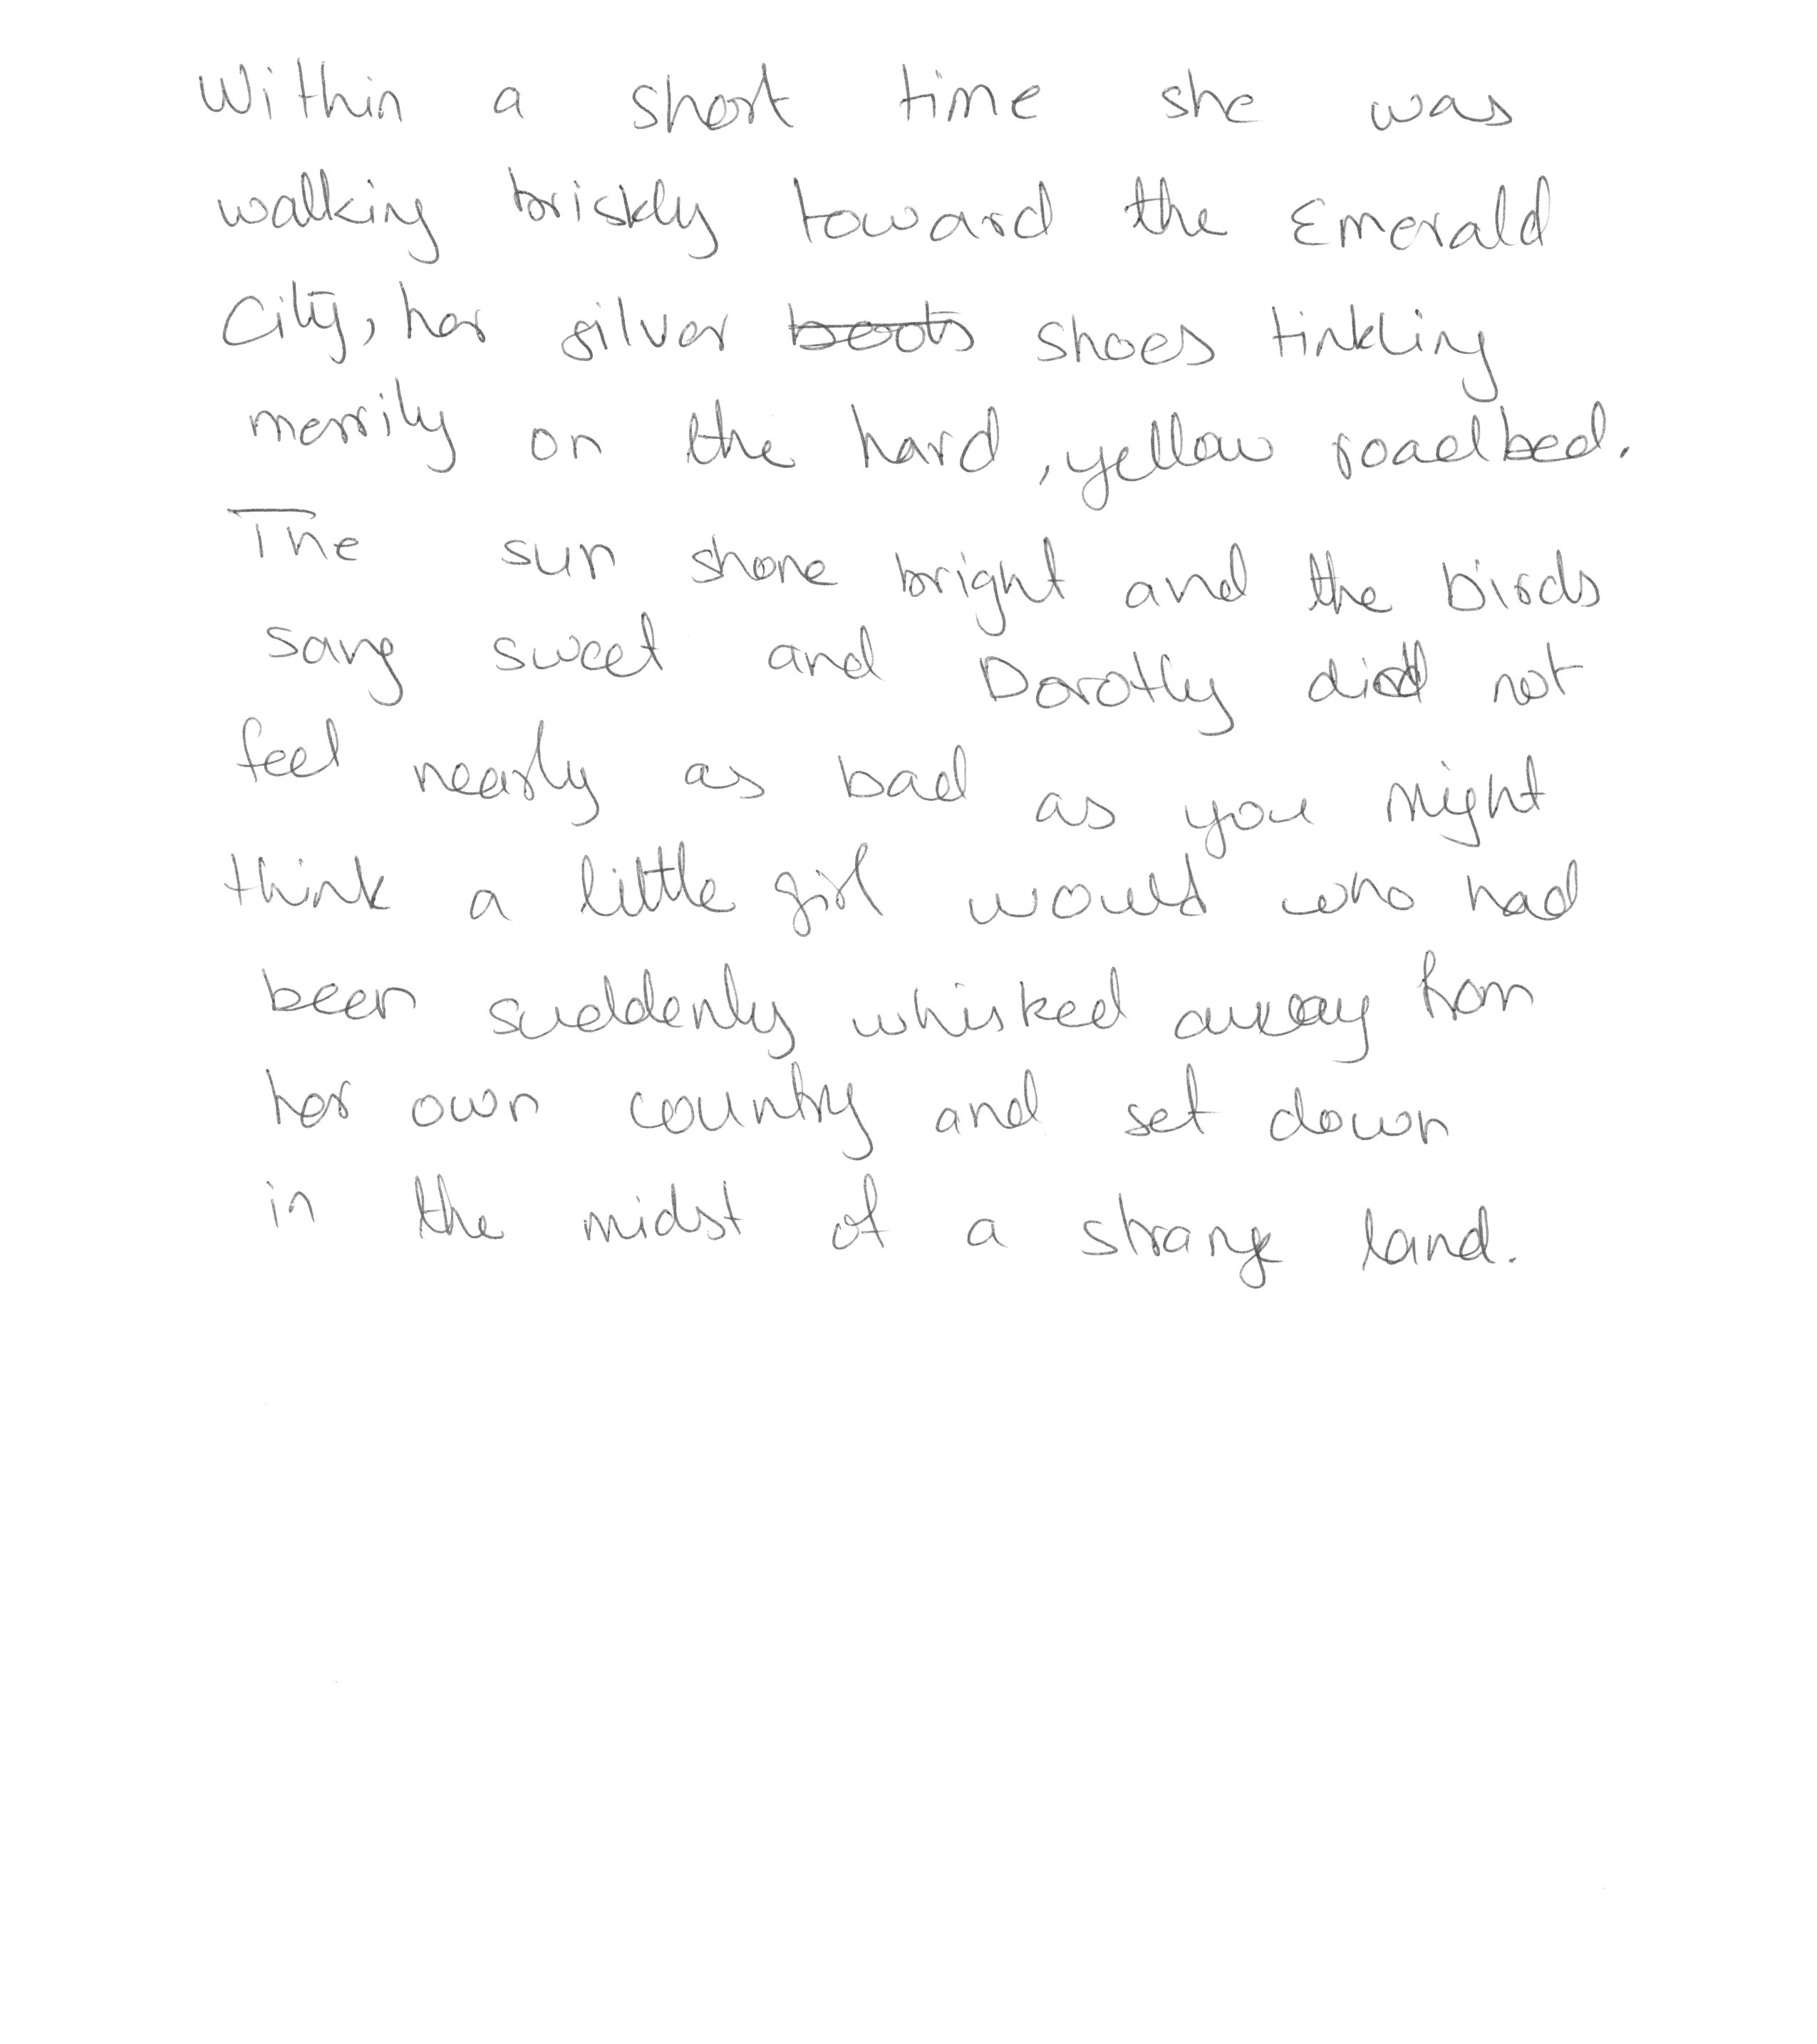 Within a short time she was
walking briskly toward the Emerald
City, her silver ~~boots~~ shoes tinkling
merrily on the hard, yellow roadbed.
The sun shone bright and the birds
sang sweet and Dorothy did not
feel nearly as bad as you might
think a little girl would who had
been suddenly whisked away from
her own country and set down
in the midst of a strange land.